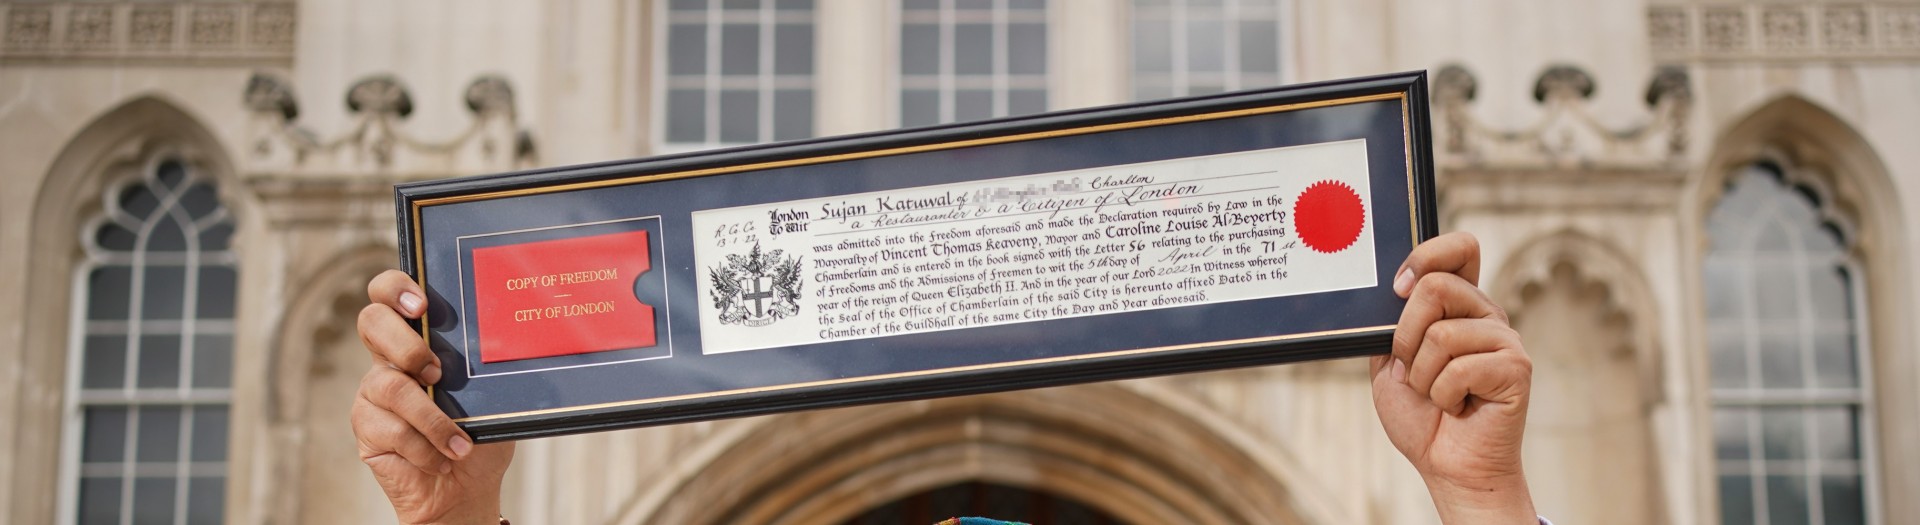 COPY OF FREEDOM
CITY OF LONDON
R.Co.Co
13-1-22
London
To Wit
Sujan Katuwal of Charlton
a Restauranter & a Citizen of London
was admitted into the Freedom aforesaid and made the Declaration required by Law in the
Mayoralty of Vincent Thomas Keaveny, Mayor and Caroline Louise Al Beyerty
Chamberlain and is entered in the book signed with the Letter S6 relating to the purchasing
of Freedoms and the Admissions of Freemen to wit the 5th day of April in the 71st
year of the reign of Queen Elizabeth II. And in the year of our Lord 2022 In Witness whereof
the Seal of the Office of Chamberlain of the said City is hereunto affixed Dated in the
Chamber of the Guildhall of the same City the Day and Year abovesaid.